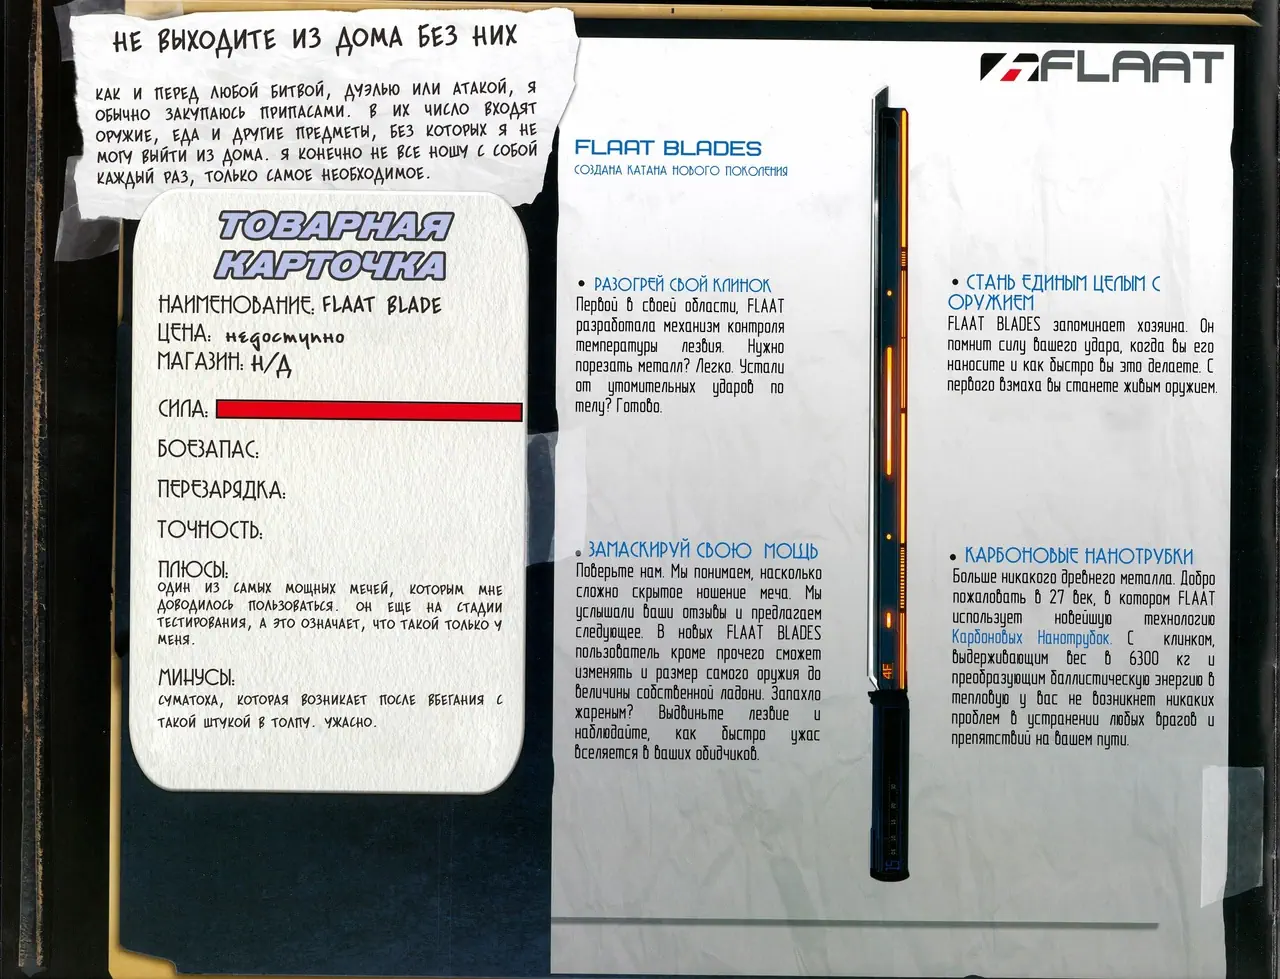 НЕ ВЫХОДИТЕ ИЗ ДОМА БЕЗ НИХ
КАК И ПЕРЕД ЛЮБОЙ БИТВОЙ, ДУЭЛЬЮ ИЛИ АТАКОЙ, Я
ОБЫЧНО ЗАКУПАЮСЬ ПРИПАСАМИ. В ИХ ЧИСЛО ВХОДЯТ
ОРУЖИЕ, ЕДА И ДРУГИЕ ПРЕДМЕТЫ, БЕЗ КОТОРЫХ Я НЕ
МОГУ ВЫЙТИ ИЗ ДОМА. Я КОНЕЧНО НЕ ВСЕ НОШУ С СОБОЙ
КАЖДЫЙ РАЗ, ТОЛЬКО САМОЕ НЕОБХОДИМОЕ.
ТОВАРНАЯ
КАРТОЧКА
НАИМЕНОВАНИЕ: FLAAT BLADE
ЦЕНА: недоступно
МАГАЗИН: Н/Д
СИЛА:
БОЕЗАПАС:
ПЕРЕЗАРЯДКА:
ТОЧНОСТЬ:
ПЛЮСЫ:
ОДИН ИЗ САМЫХ МОЩНЫХ МЕЧЕЙ, КОТОРЫМ МНЕ
ДОВОДИЛОСЬ ПОЛЬЗОВАТЬСЯ. ОН ЕЩЕ НА СТАДИИ
ТЕСТИРОВАНИЯ, А ЭТО ОЗНАЧАЕТ, ЧТО ТАКОЙ ТОЛЬКО У
МЕНЯ.
МИНУСЫ:
СУМАТОХА, КОТОРАЯ ВОЗНИКАЕТ ПОСЛЕ ВБЕГАНИЯ С
ТАКОЙ ШТУКОЙ В ТОЛПУ. УЖАСНО.
FLAAT
FLAAT BLADES
СОЗДАНА КАТАНА НОВОГО ПОКОЛЕНИЯ
• РАЗОГРЕЙ СВОЙ КЛИНОК
Первой в своей области, FLAAT
разработала механизм контроля
температуры лезвия. Нужно
порезать металл? Легко. Устали
от утомительных ударов по
телу? Готово.
• СТАНЬ ЕДИНЫМ ЦЕЛЫМ С
ОРУЖИЕМ
FLAAT BLADES запоминает хозяина. Он
помнит силу вашего удара, когда вы его
наносите и как быстро вы это делаете. С
первого взмаха вы станете живым оружием.
• ЗАМАСКИРУЙ СВОЮ МОЩЬ
Поверьте нам. Мы понимаем, насколько
сложно скрытое ношение меча. Мы
услышали ваши отзывы и предлагаем
следующее. В новых FLAAT BLADES
пользователь кроме прочего сможет
изменять и размер самого оружия до
величины собственной ладони. Запахло
жареным? Выдвиньте лезвие и
наблюдайте, как быстро ужас
вселяется в ваших обидчиков.
• КАРБОНОВЫЕ НАНОТРУБКИ
Больше никакого древнего металла. Добро
пожаловать в 27 век, в котором FLAAT
использует новейшую технологию
Карбоновых Нанотрубок. С клинком,
выдерживающим вес в 6300 кг и
преобразующим баллистическую энергию в
тепловую у вас не возникнет никаких
проблем в устранении любых врагов и
препятствий на вашем пути.
4F